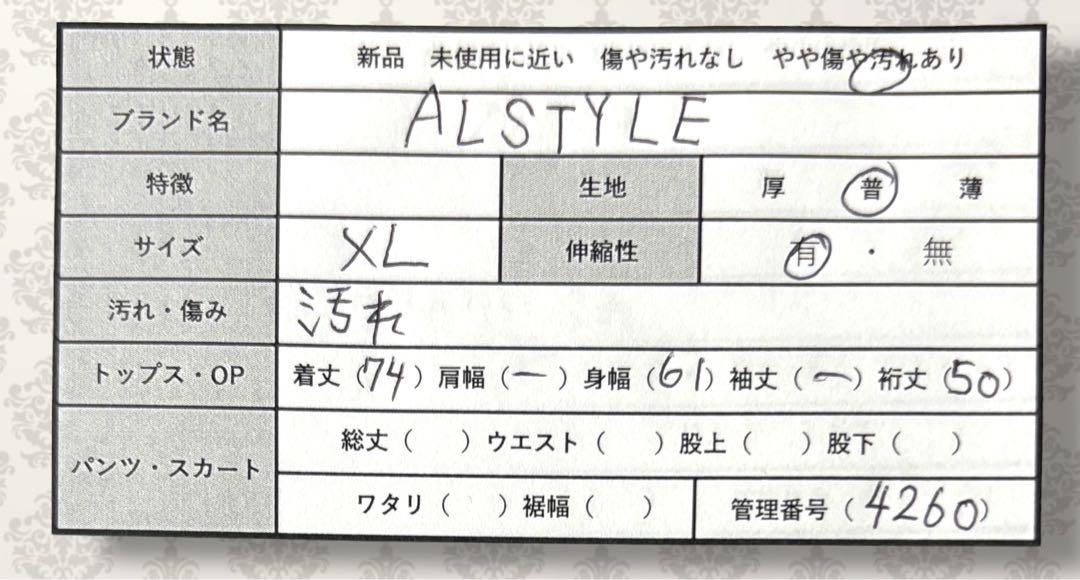 状態 新品 未使用に近い 傷や汚れなし やや傷や汚れあり
ブランド名 ALSTYLE
特徴 生地 厚 普 薄
サイズ XL 伸縮性 有・無
汚れ・傷み 汚れ
トップス・OP 着丈(74) 肩幅(ー) 身幅(61) 袖丈(ー) 裄丈(50)
パンツ・スカート 総丈( ) ウエスト( ) 股上( ) 股下( )
ワタリ( ) 裾幅( ) 管理番号(4260)